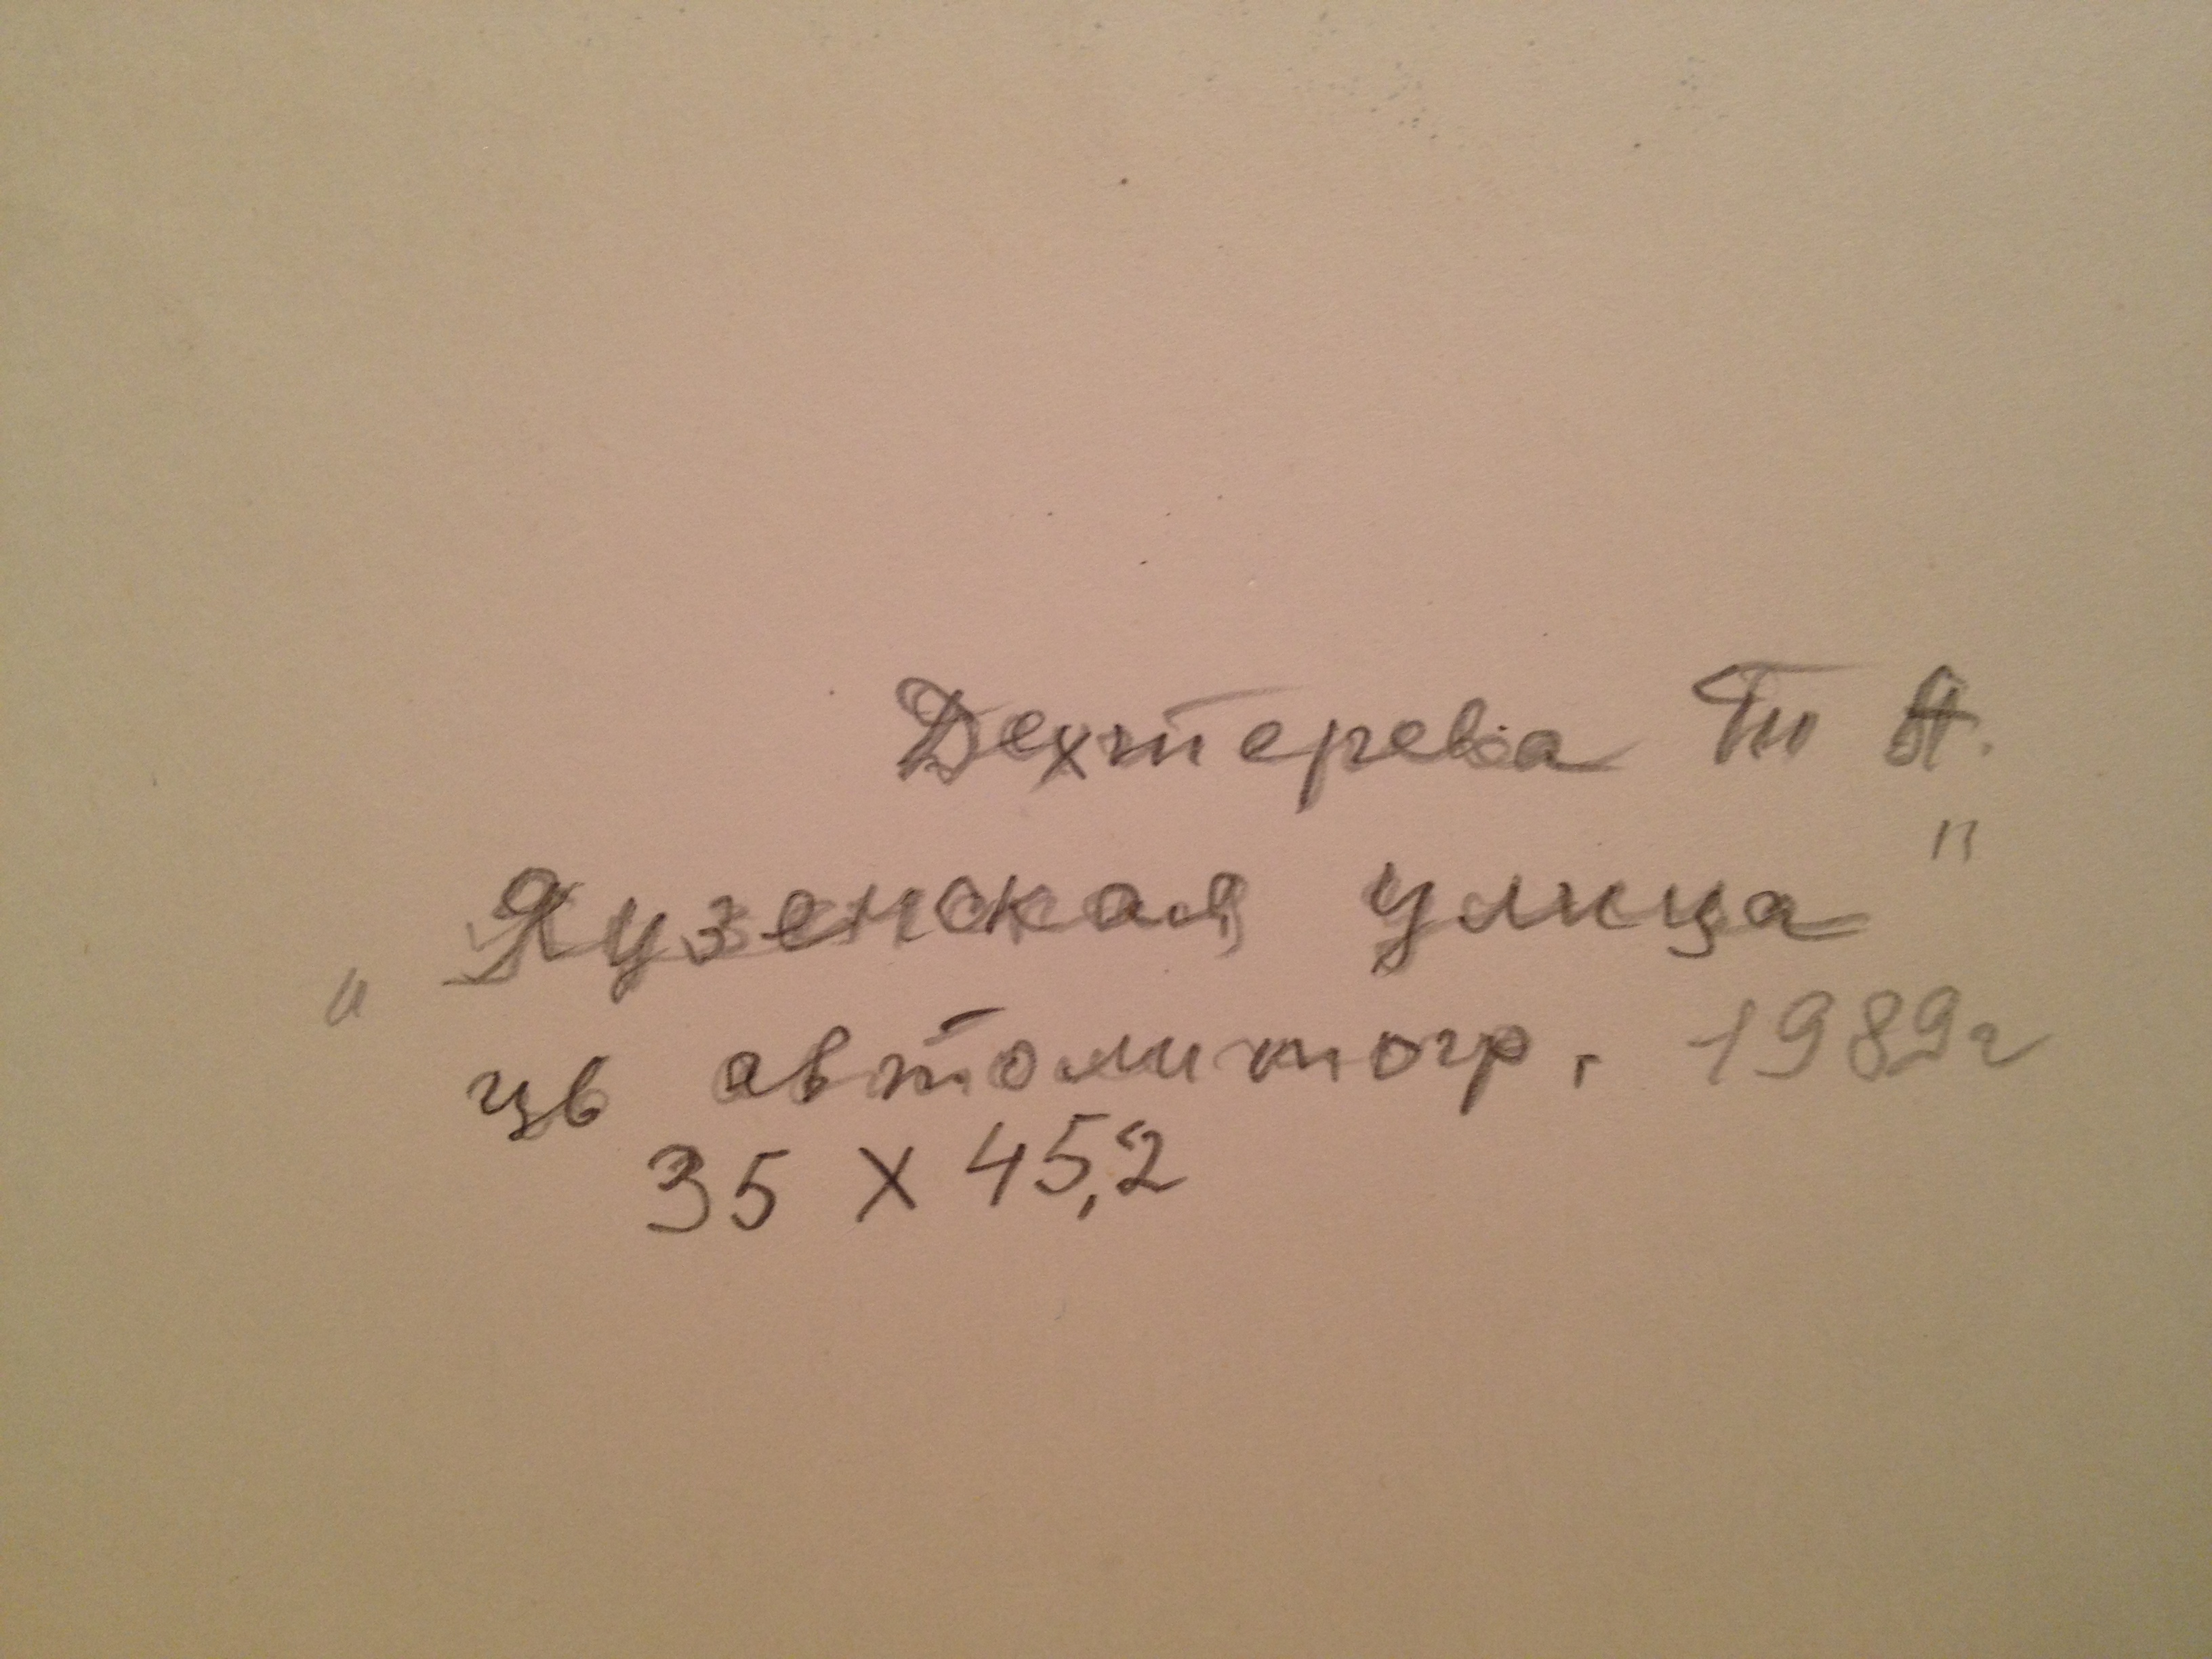 Дехтерева Т А.
„Яузенская улица"
цв автолитогр. 1989г
35 х 45,2